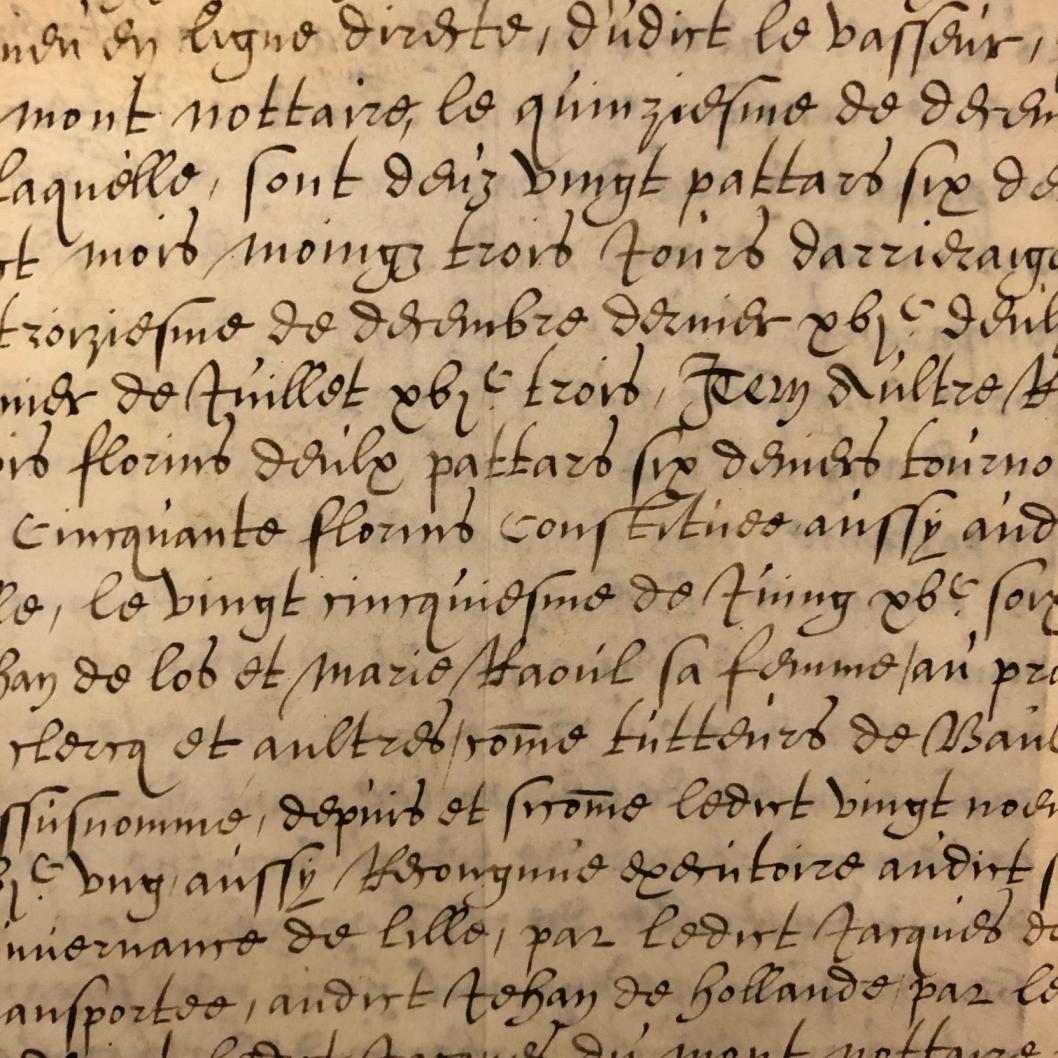 en ligne directe, dudict le vasseur,
mont nottaire, le quinziesme de decem
laquelle, sont deuz vingt pattars six de
ct mois moingz trois Jours darrieraige
troiziesme de decembre dernier xvjc deul
mier de Juillet xvjc trois, Item Aultre R
ois florins deulx pattars six deniers tourno
Cincquante florins Constituee aussy aud
le, le vingt cincquiesme de Juing xvc soix
han de los et Marie Raoul sa femme, au pro
clercq et aultres, come tutteurs de Baul
ssusnomme, depuis et sicome ledict vingt noe
vjc ung, aussy Recongnue executoire audict
uvernance de Lille, par ledict Jacques d
ansportee, audict Jehan de hollande par le
ledict Jacques du mont nottaire